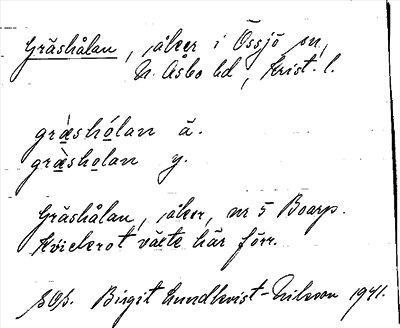 Gräshålan, åker i Össjö sn,
N. Åsbo hd, Krist. l.
græ̀shólan ä.
græ̀sholan y.
Gräshålan, åker, nr 5 Boarp.
Kvickrot växte här förr.
Birgit Lundkvist-Nilsson 1941.